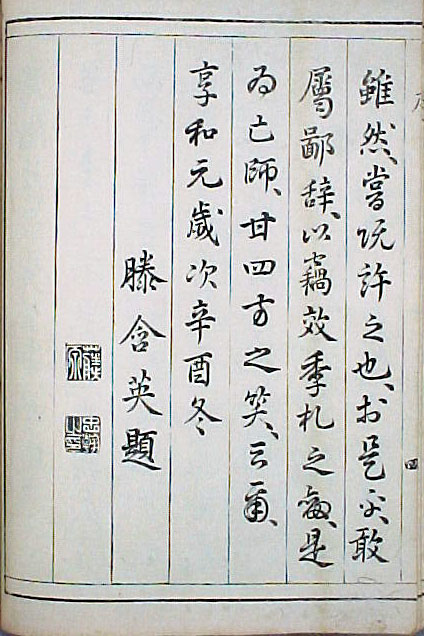 雖然、嘗既許之也、於是乎、敢
屬鄙辞、以竊效季札之劔、是
為亡師、甘四方之笑、云爾、
享和元歲次辛酉冬
滕含英題
四